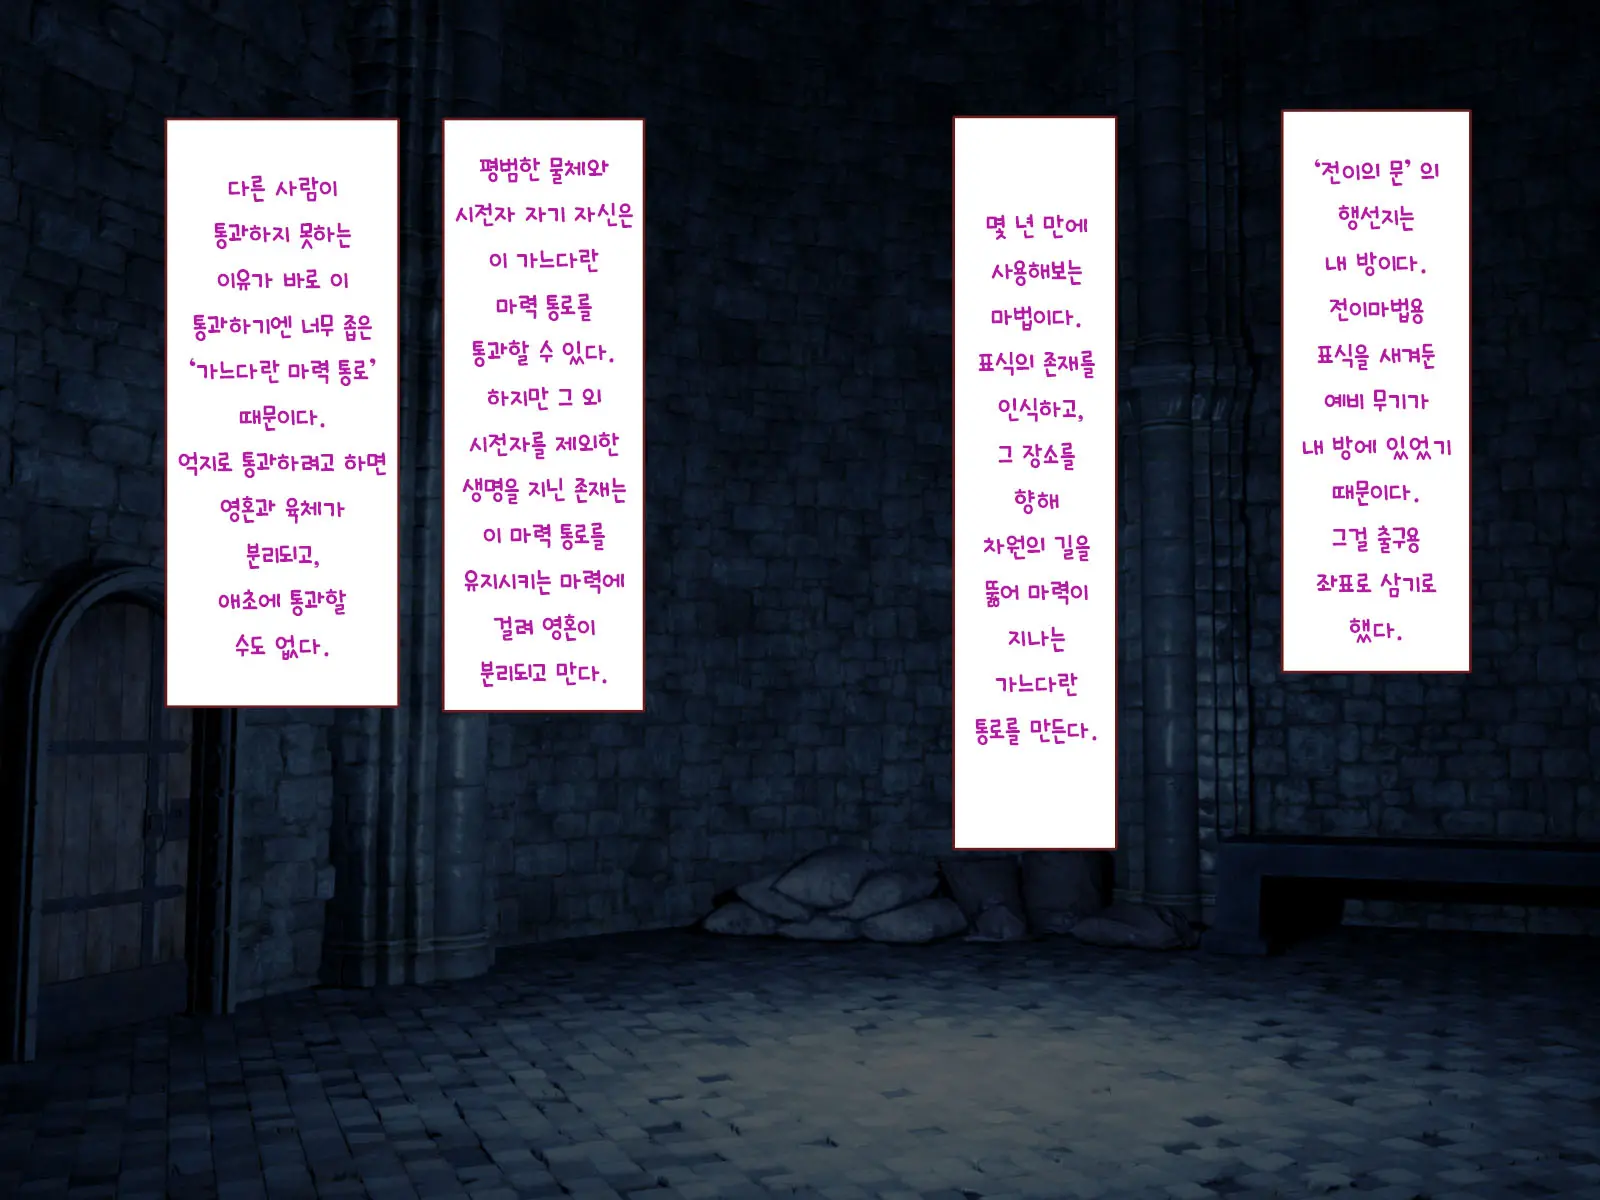 ‘전이의 문’ 의
행선지는
내 방이다.
전이마법용
표식을 새겨둔
예비 무기가
내 방에 있었기
때문이다.
그걸 출구용
좌표로 삼기로
했다.
몇 년 만에
사용해보는
마법이다.
표식의 존재를
인식하고,
그 장소를
향해
차원의 길을
뚫어 마력이
지나는
가느다란
통로를 만든다.
평범한 물체와
시전자 자기 자신은
이 가느다란
마력 통로를
통과할 수 있다.
하지만 그 외
시전자를 제외한
생명을 지닌 존재는
이 마력 통로를
유지시키는 마력에
걸려 영혼이
분리되고 만다.
다른 사람이
통과하지 못하는
이유가 바로 이
통과하기엔 너무 좁은
‘가느다란 마력 통로’
때문이다.
억지로 통과하려고 하면
영혼과 육체가
분리되고,
애초에 통과할
수도 없다.